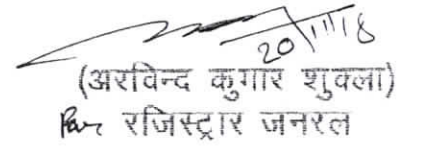 20/11/18
(अरविन्द कुमार शुक्ला)
For रजिस्ट्रार जनरल